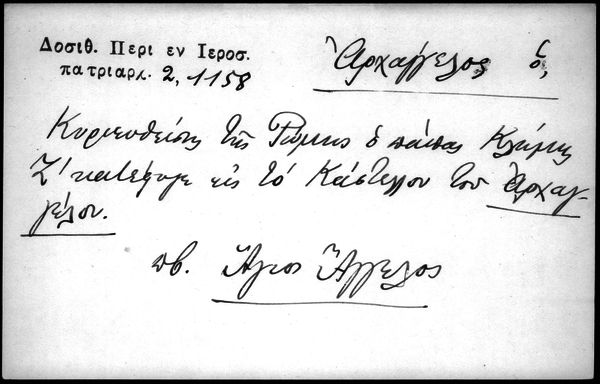 Δοσιθ. Περι εν Ιεροσ.
πατριαρχ. 2, 1158
Ἀρχάγγελος, ὁ,
Κυριευθείσης τῆς Ρώμης ὁ πάπας Κλήμης
Ζ' κατέφυγε εἰς τὸ Κάστελλον τοῦ Ἀρχαγ-
γέλου.
πβ. Ἅγιος Ἄγγελος